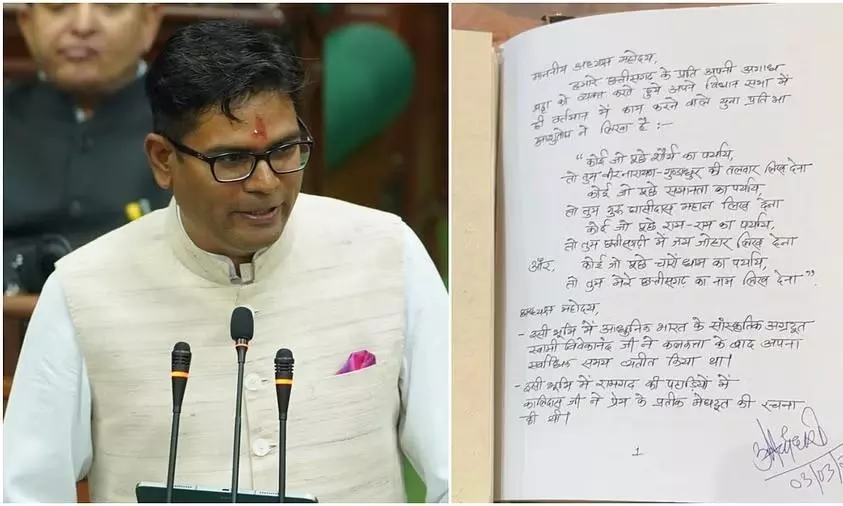 माननीय अध्यक्ष महोदय,
हमारे छत्तीसगढ़ के प्रति अपनी अगाध
श्रद्धा को व्यक्त करते हुये अपने विधान सभा में
ही वर्तमान में काम करने वाले युवा प्रतिभा
ने लिखा है :-
“ कोई जो पूछे शौर्य का पर्याय,
तो तुम वीरनारायण-गुण्डाधुर की तलवार लिख देना
कोई जो पूछे समानता का पर्याय,
तो तुम गुरु घासीदास महान लिख देना
कोई जो पूछे राम-राम का पर्याय,
तो तुम छत्तीसगढ़ी में जय जोहार लिख देना
और, कोई जो पूछे चारों धाम का पर्याय,
तो तुम मेरे छत्तीसगढ़ का नाम लिख देना”.
अध्यक्ष महोदय,
- इसी भूमि में आधुनिक भारत के सांस्कृतिक अग्रदूत
स्वामी विवेकानंद जी ने कलकत्ता के बाद अपना
सर्वाधिक समय व्यतीत किया था।
- इसी भूमि में रामगढ़ की पहाड़ियों में
कालिदास जी ने प्रेम के प्रतीक मेघदूत की रचना
की थी।
1
03/03/